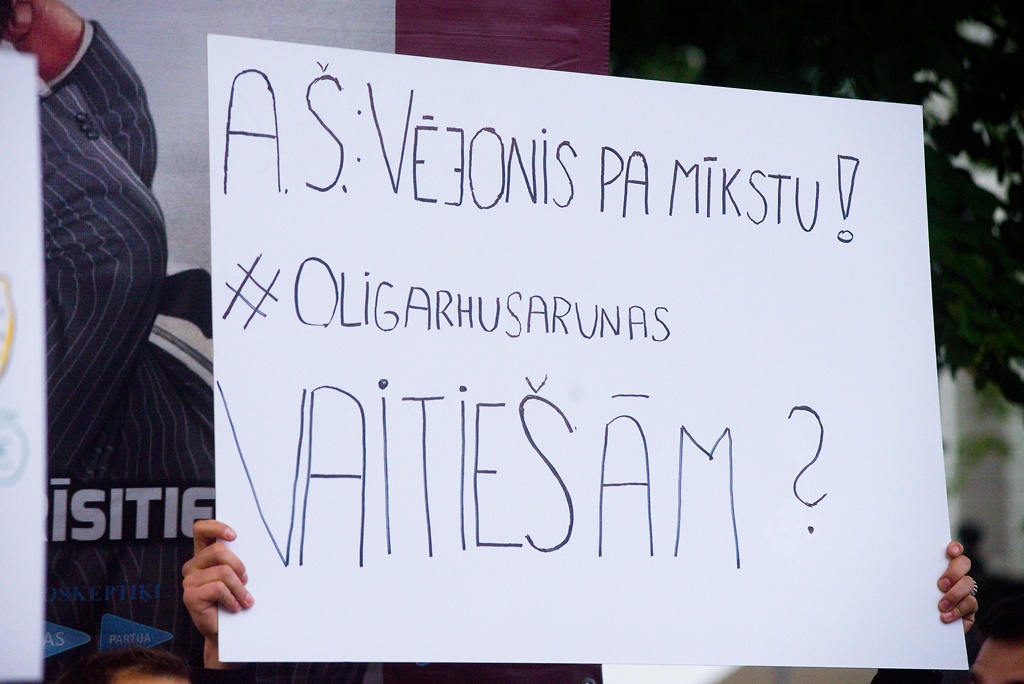 A.Š.: VĒJONIS PA MĪKSTU!
#OLIGARHUSARUNAS
VAITIEŠĀM?
ĪSITIE
OSKEPTIĶI
AS
PARTIJA